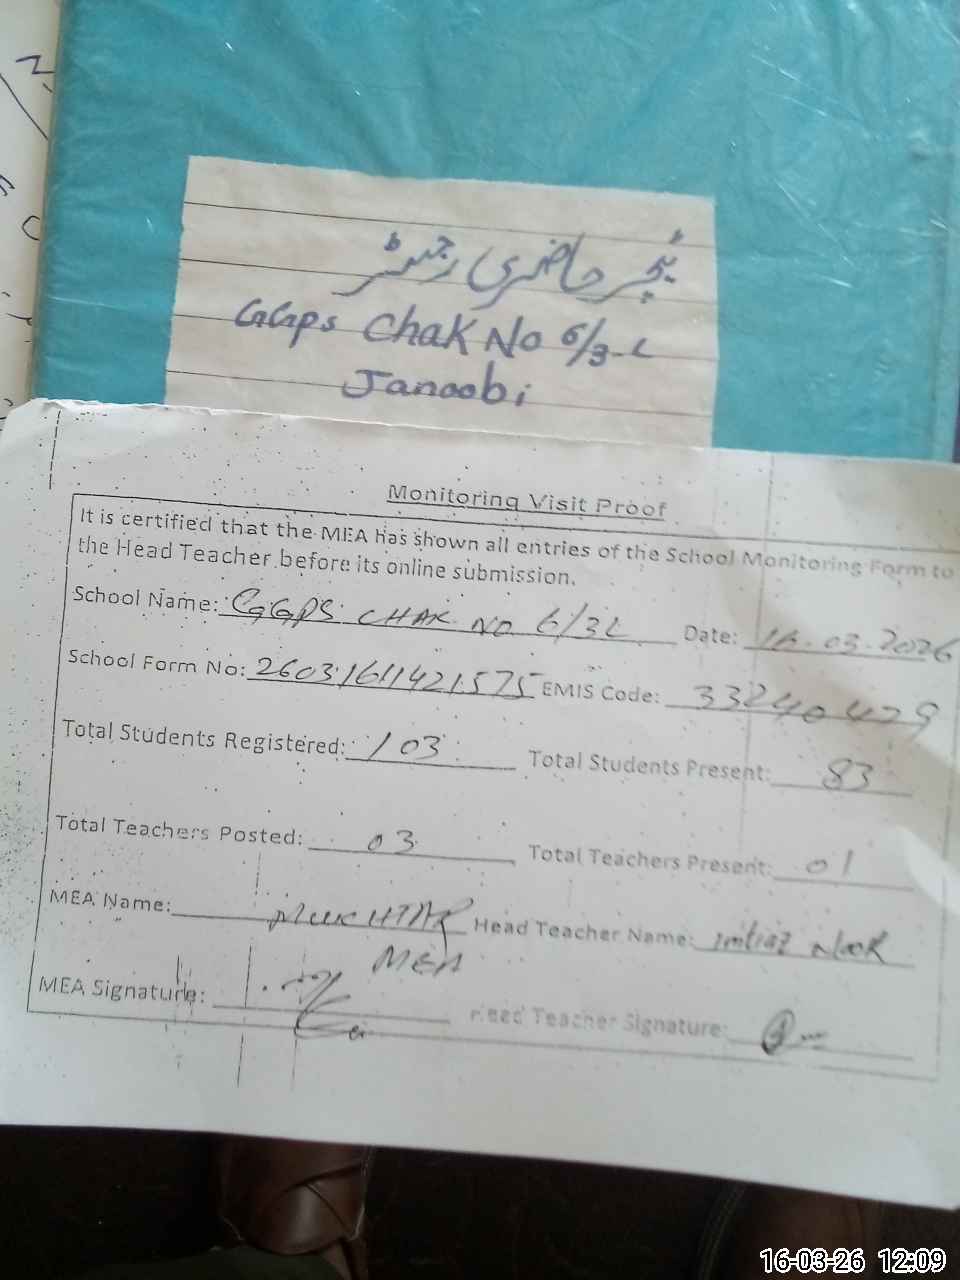 ٹیچر حاضری رجسٹر
GGPS Chak No 6/3-L
Janoobi
Monitoring Visit Proof
It is certified that the MEA has shown all entries of the School Monitoring Form to
the Head Teacher before its online submission.
School Name: GGPS CHAK NO 6/3L Date: 16.03.2026
School Form No: 26031611421575 EMIS Code: 33240429
Total Students Registered: 103 Total Students Present: 83
Total Teachers Posted: 03 Total Teachers Present: 01
MEA Name: MUKHTAR Head Teacher Name: Imtiaz Noor
MEA
MEA Signature: Head Teacher Signature:
16-03-26 12:09